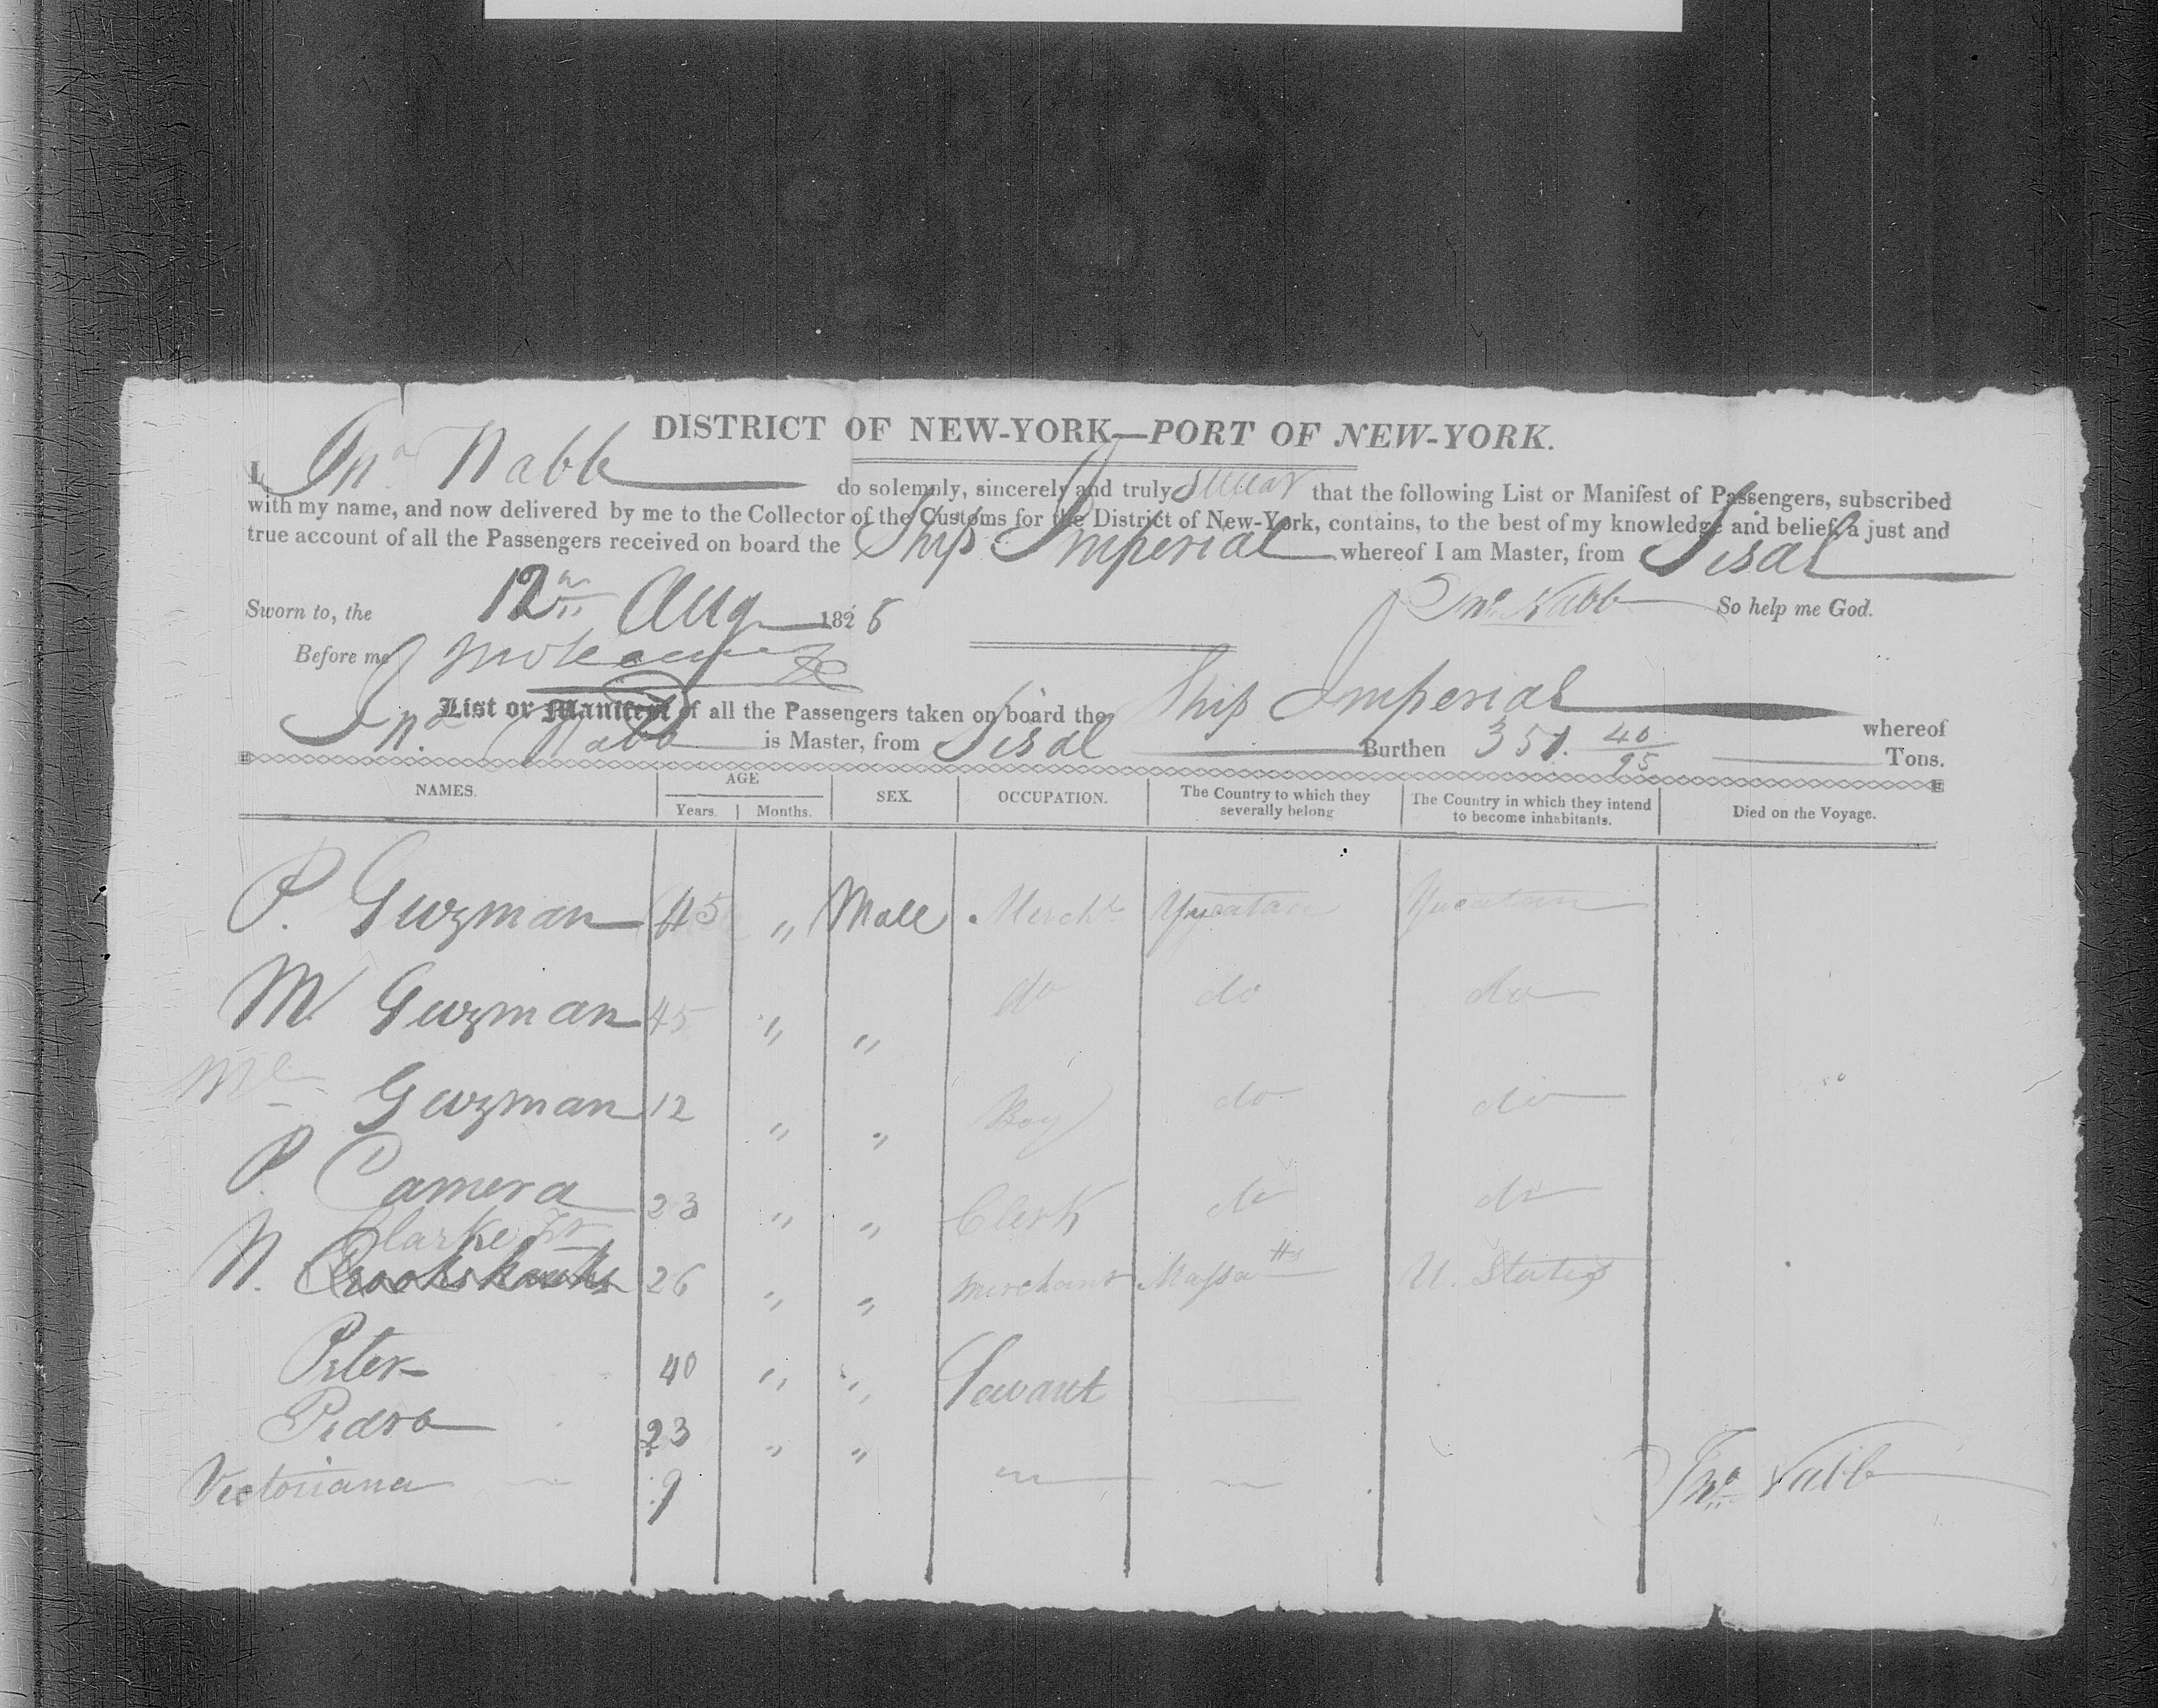 DISTRICT OF NEW-YORK—PORT OF NEW-YORK.
I Jno Nabb do solemnly, sincerely and truly swear that the following List or Manifest of Passengers, subscribed
with my name, and now delivered by me to the Collector of the Customs for the District of New-York, contains, to the best of my knowledge and belief, a just and
true account of all the Passengers received on board the Ship Imperial whereof I am Master, from Sisal
Sworn to, the 12th Aug 1828 Jno Nabb So help me God.
Before me
List or Manifest of all the Passengers taken on board the Ship Imperial whereof
Jno Nabb is Master, from Sisal Burthen 351. 40/95 Tons.
NAMES. AGE Years. Months. SEX. OCCUPATION. The Country to which they severally belong The Country in which they intend to become inhabitants. Died on the Voyage.
P. Guzman 45 " Male Mercht Yucatan Yucatan
M Guzman 45 " " do do do
Guzman 12 " " Boy do do
P. Camera 23 " " Clerk do do
Clarke Jr
N. 26 " " Merchant Massatts U. States
Peter 40 " " Servant —
Pedro 23 " "
Victoriana — 9 — — Jno Nabb